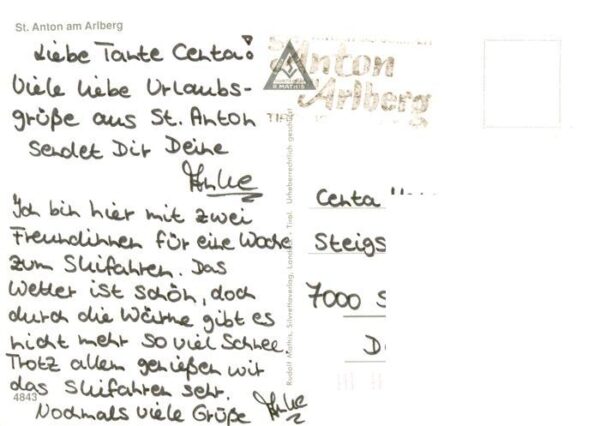 St. Anton am Arlberg
Liebe Tante Centa!
Viele liebe Urlaubs-
grüße aus St. Anton
sendet Dir Deine
Anke
Ich bin hier mit zwei
Freundinnen für eine Woche
zum Skifahren. Das
Wetter ist schön, doch
durch die Wärme gibt es
nicht mehr so viel Schnee.
Trotz allem genießen wir
das Skifahren sehr.
Nochmals viele Grüße Anke
4843
R. MATHIS
Anton
Arlberg
Rudolf Mathis, Silvrettaverlag, Landeck - Tirol. Urheberrechtlich geschützt
Centa
Steigs
7000 S
D